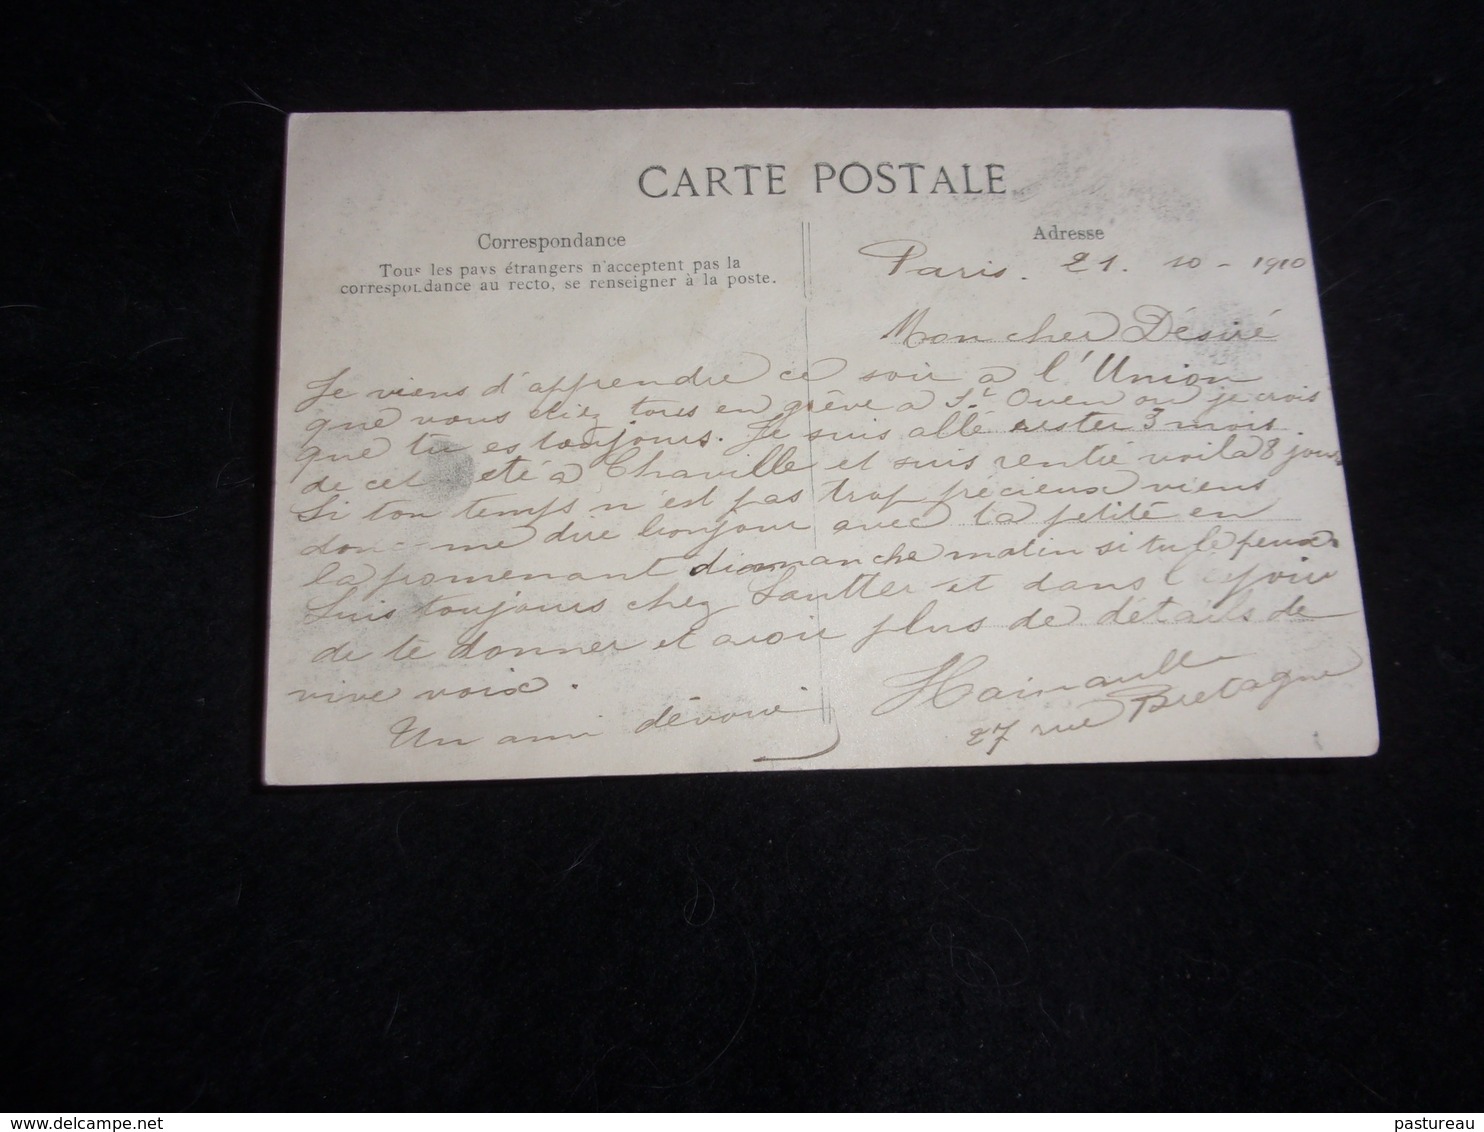 CARTE POSTALE
Correspondance
Tous les pays étrangers n'acceptent pas la
correspondance au recto, se renseigner à la poste.
Adresse
Paris. 21. 10 - 1910
Mon cher Désiré
Je viens d'apprendre ce soir à l'Union
que vous étiez tous en grève à St Ouen ou je crois
que tu es toujours. Je suis allé rester 3 mois
de cet été à Chaville et suis rentré voila 8 jours
Si ton temps n'est pas trop précieux viens
donc me dire bonjour avec la petite en
la promenant dimanche matin si tu le peux.
Suis toujours chez Sautter et dans l'espoir
de te donner et avoir plus de détails de
vive voix.
Un ami dévoué
Hainault
27 rue Bretagne
www.delcampe.net
pastureau